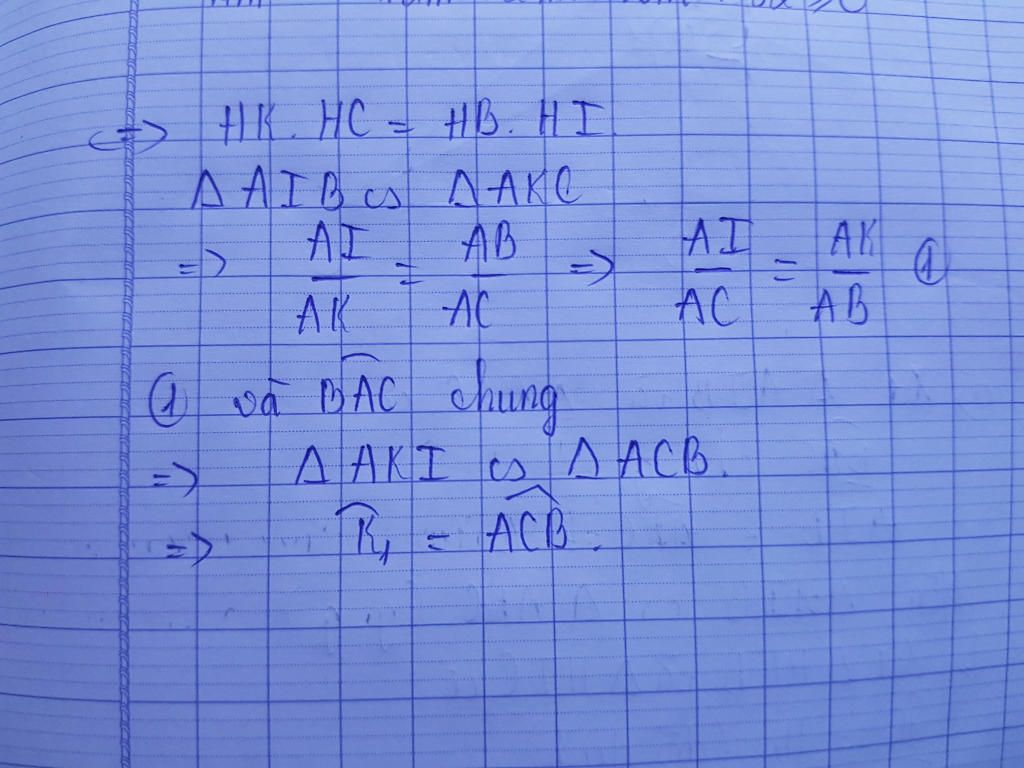 <=> HK. HC = HB. HI
Δ AIB ∽ Δ AKC
=> AI/AK = AB/AC => AI/AC = AK/AB ①
① và BAC chung
=> Δ AKI ∽ Δ ACB.
=> K₁ = ACB.